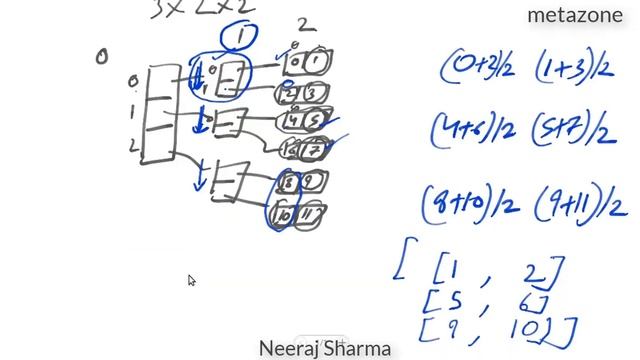 3x2x2
metazone
0 1 2
0 0 0 1 (0+2)/2 (1+3)/2
1 2 3
1 0 4 5 (4+6)/2 (5+7)/2
2 6 7
8 9 (8+10)/2 (9+11)/2
10 11
[ [1 , 2]
[5 , 6]
[9 , 10] ]
Neeraj Sharma